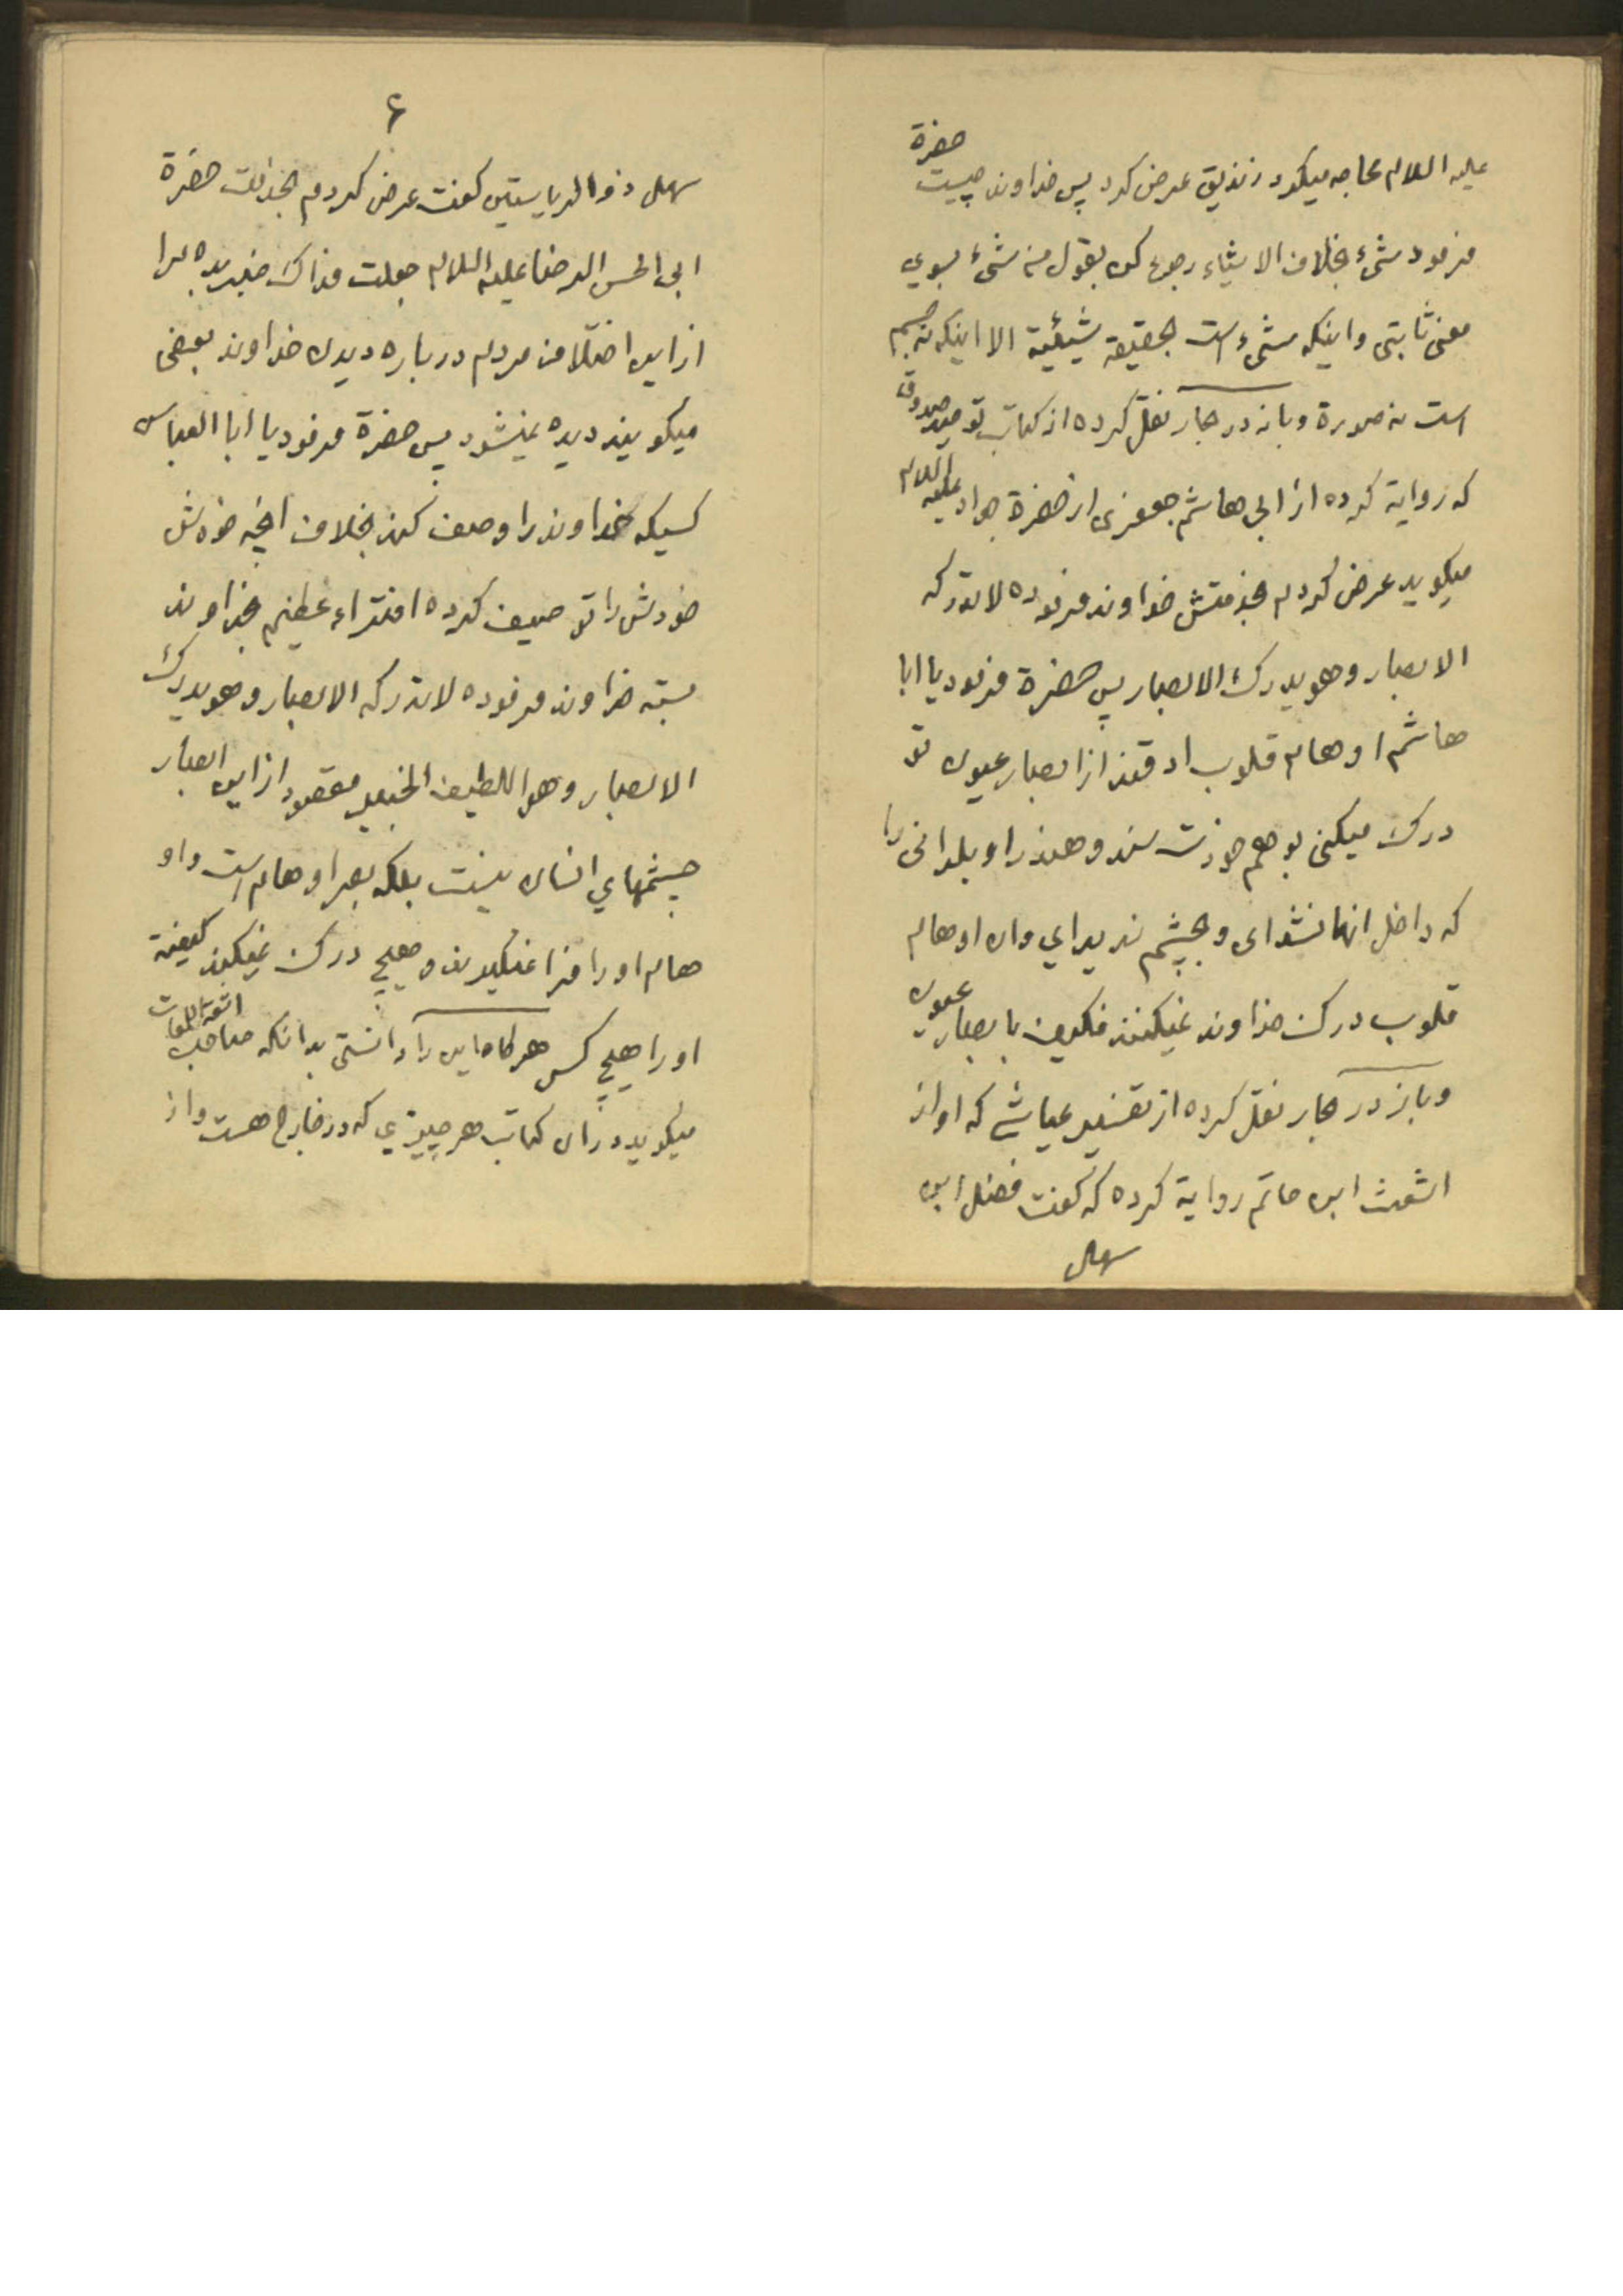 علیه السلام محاجه میکرد زندیق عرض کرد پس خداوند چیست حضرة
فرمود شیء بخلاف الاشیاء رجوع کن بقول من شیء بسوي
معنی ثابتی و اینکه شیء است بحقیقة شیئیة الا اینکه نه جسم
است نه صورة و باز در بحار نقل کرده از کتاب توحید صدوق
که روایة کرده از ابي هاشم جعفری از حضرة جواد علیه السلام
میکوید عرض کردم بخدمتش خداوند فرموده لا تدرکه
الابصار و هو یدرك الابصار پس حضرة فرمود یا ابا
هاشم اوهام قلوب ادقند از ابصار عیون تو
درك میکنی بوهم خودت سند و هند را و بلدانی را
که داخل انها نشدای و بچشم ندیداي وان اوهام
قلوب درك خداوند نمیکنند فکیف بابصار عیون
و باز در بحار نقل کرده از تفسیر عیاشي که او از
اشعث ابن حاتم روایة کرده که کفت فضل ابن
سهل
۶
سهل ذوالریاستین کفت عرض کردم بخدمت حضرة
ابی الحسن الرضا علیه السلام جعلت فداك خبر بده مرا
از این اختلاف مردم درباره دیدن خداوند بعضی
میکویند دیده نمیشود پس حضرة فرمود یا ابا العباس
کسیکه خداوند را وصف کند بخلاف انچه خودش
خودش را توصیف کرده افتراء عظیم بخداوند
بسته خداوند فرموده لا تدرکه الابصار و هو یدرك
الابصار و هو اللطیف الخبیر مقصود از این ابصار
چشمهاي انسان نیست بلکه بصر اوهام است و او
هام او را فرا نمیکیرند و هیچ درك نمیکند کیفیة
او را هیچ کس هرکاه این را دانستی بدانکه صاحب اشعة اللمعات
میکوید در ان کتاب هر چیزي که در خارج هست و از